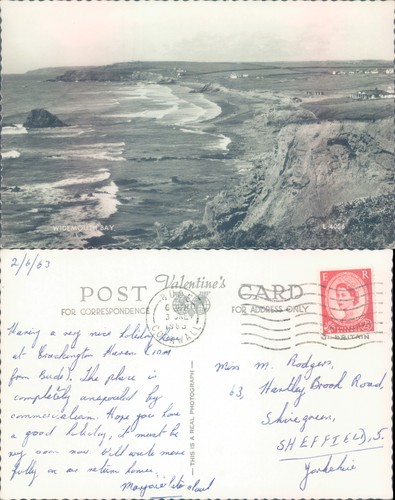 WIDEMOUTH BAY
E 4056
2/6/63
POST
Valentine's
CARD
FOR CORRESPONDENCE
FOR ADDRESS ONLY
BUDE
1963
CORNWALL
E R
Having a very nice holiday here
at Crackington Haven (10m
from Bude). The place is
completely unspoiled by
commercialism. Hope you have
a good holiday, it must be
very soon now. Will write more
fully on our return home.
THIS IS A REAL PHOTOGRAPH
Miss M. Rodgers,
63, Huntley Brook Road,
Shiregreen,
SHEFFIELD, 5.
Yorkshire